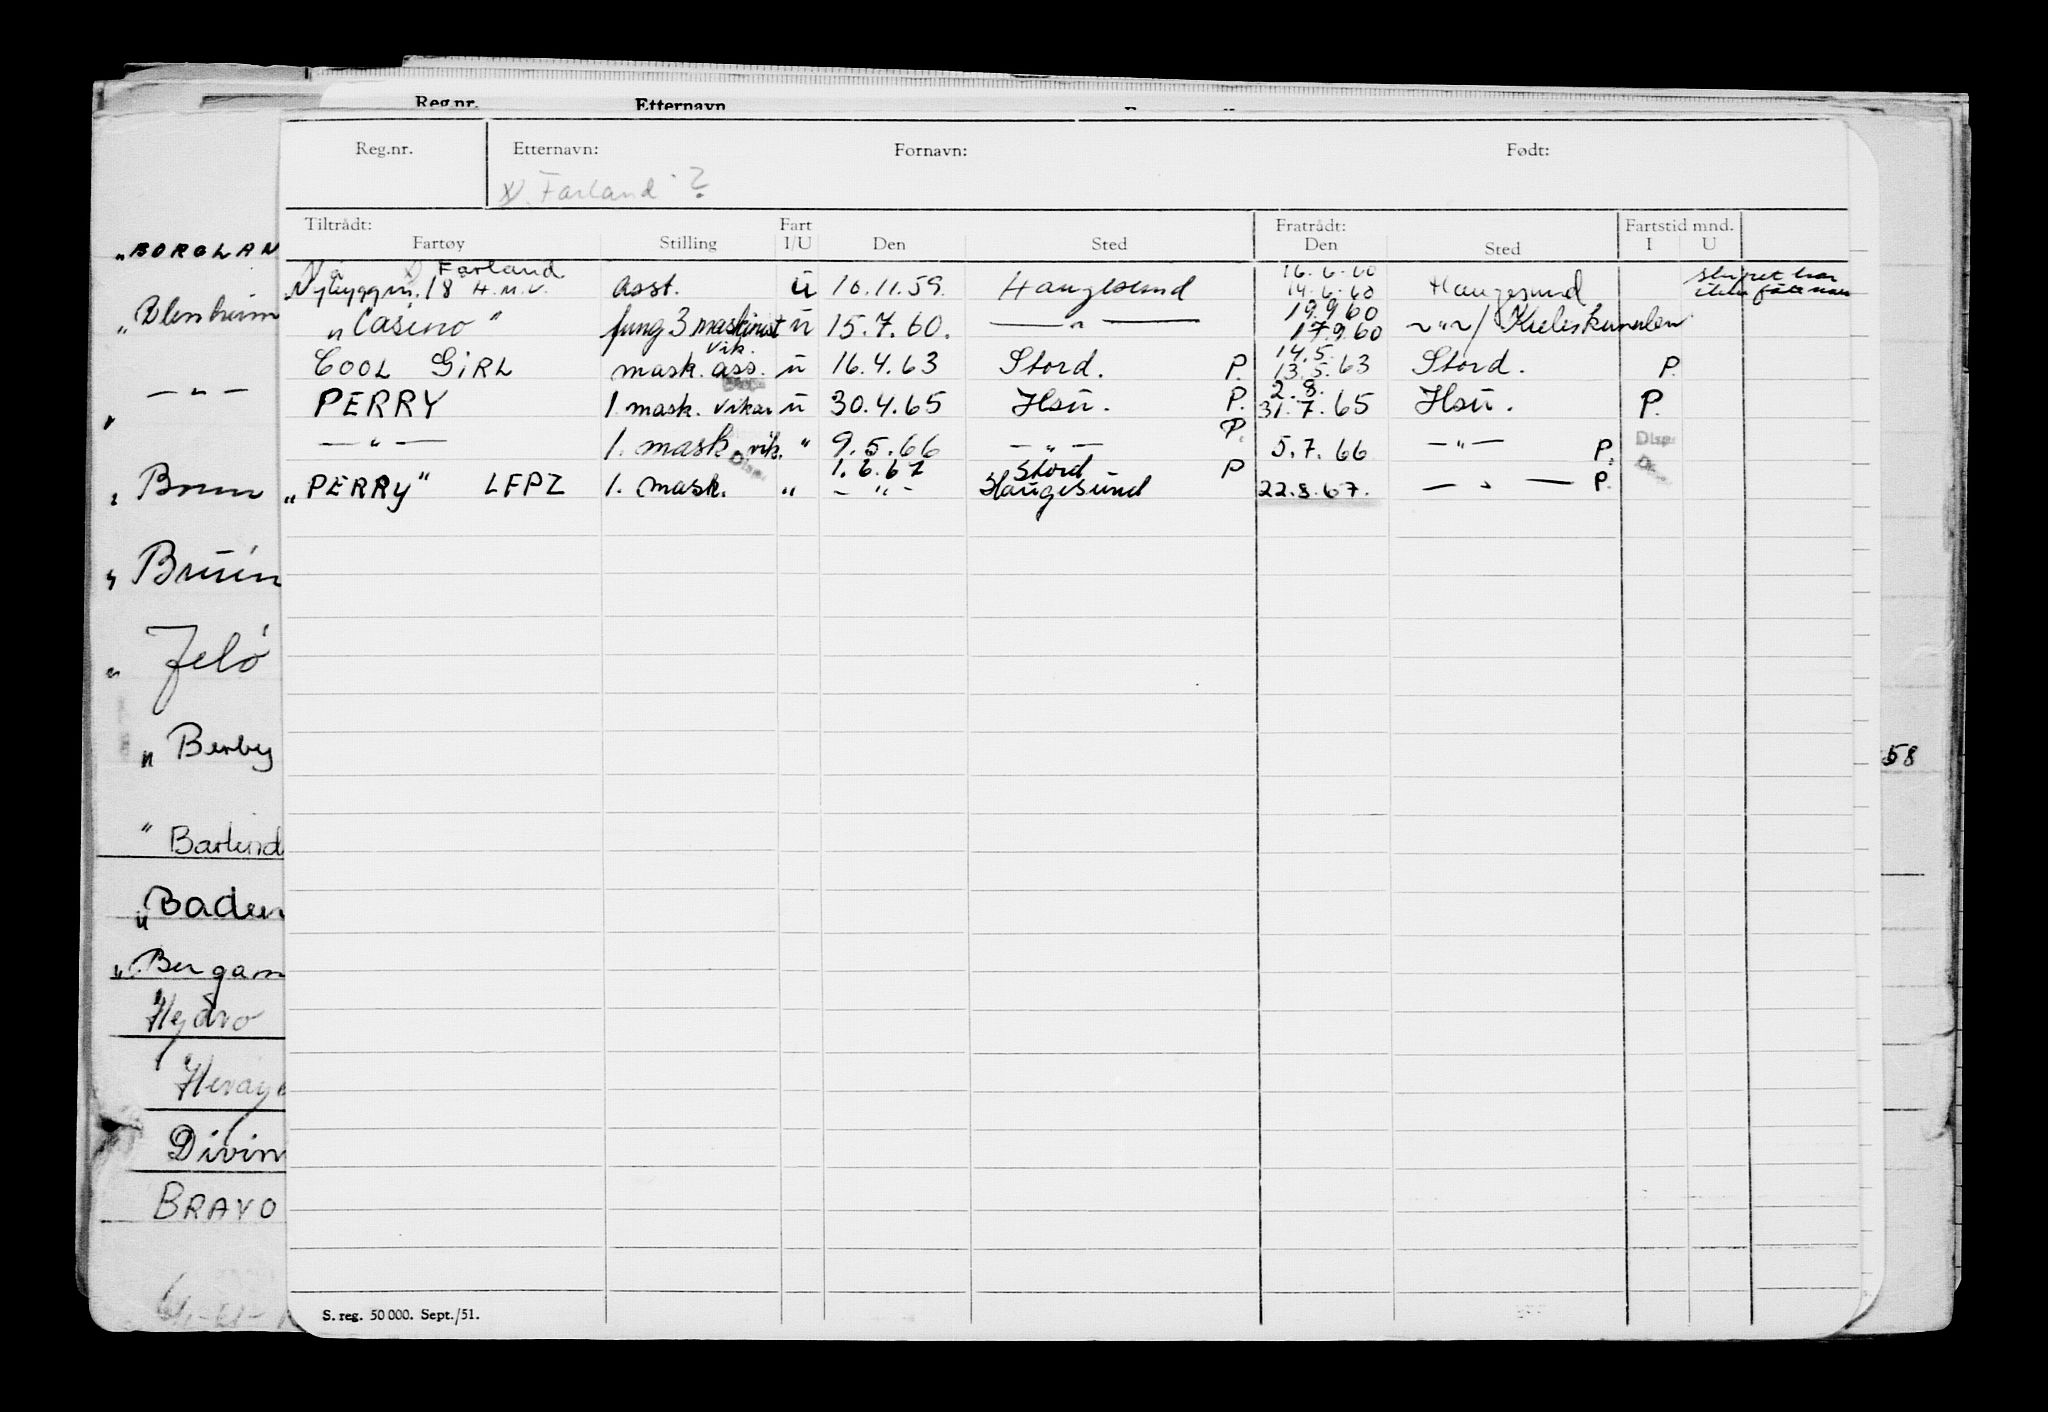 Reg.nr. Etternavn
Reg.nr. Etternavn: Fornavn: Født:
Farland ?
Tiltrådt: Fart Fratrådt: Fartstid mnd.
Fartøy Stilling I/U Den Sted Den Sted I U
Farland 16.6.60
Nybyggn. 18 H.M.V. asst. U 10.11.59. Haugesund 14.6.60 Haugesund
19.9.60
"Casino" fung 3 maskinist U 15.7.60. — " — 17.9.60 ~"~/ Kielerkanalen
vik. 14.5.
COOL GIRL mask. ass. U 16.4.63 Stord. P. 13.5.63 Stord. P.
2.8.
PERRY 1. mask. vikar U 30.4.65 Hsu. P. 31.7.65 Hsu. P.
— " — 1. mask. vik. " 9.5.66 — " — P. 5.7.66 — " — P. Disp.
Disp. 1.6.67 Stord P
"PERRY" LFPZ 1. mask. " — " — Haugesund 22.8.67. — " — P.
"BORGLAN
"Blenheim
— " —
" Brun
" Bruin
" Jelö
" Berby
58
" Barlind
"Baden
"Bergam
Hydro
Divin
BRAVO
S. reg. 50 000. Sept./51.